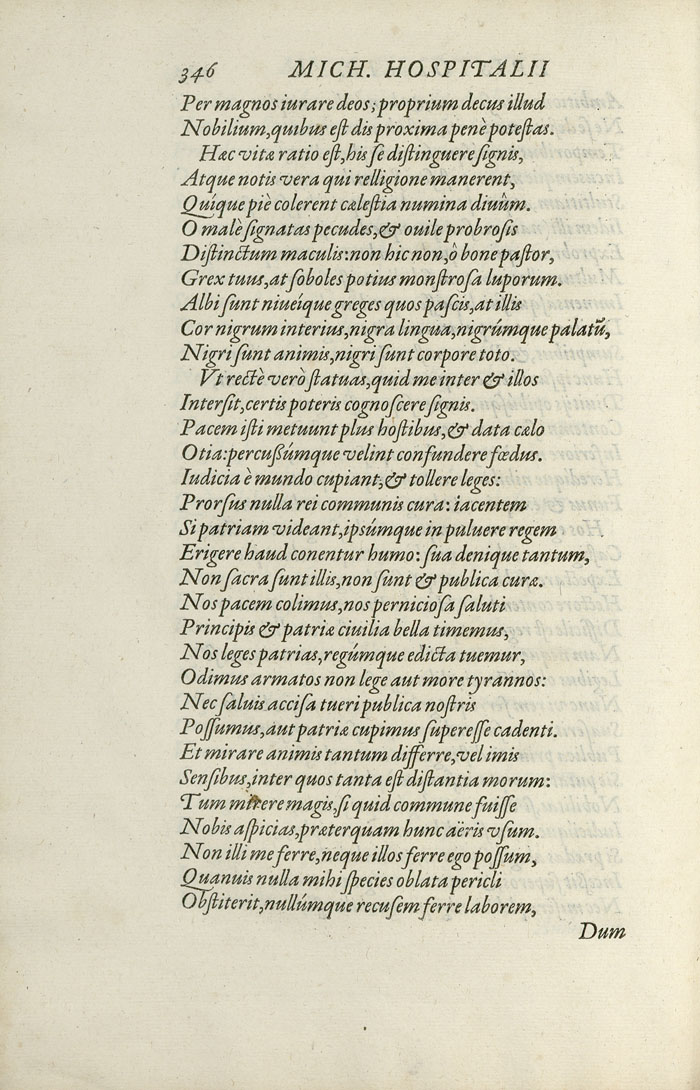 346 MICH. HOSPITALII
Per magnos iurare deos; proprium decus illud
Nobilium, quibus eſt dis proxima penè poteſtas.
Hæc vitæ ratio eſt, his ſe diſtinguere ſignis,
Atque notis vera qui relligione manerent,
Quíque piè colerent cæleſtia numina diuûm.
O malè ſignatas pecudes, & ouile probroſis
Diſtinctum maculis: non hic non, ô bone paſtor,
Grex tuus, at ſoboles potius monſtroſa luporum.
Albi ſunt niueíque greges quos paſcis, at illis
Cor nigrum interius, nigra lingua, nigrúmque palatũ,
Nigri ſunt animis, nigri ſunt corpore toto.
Vt rectè verò ſtatuas, quid me inter & illos
Interſit, certis poteris cognoſcere ſignis.
Pacem iſti metuunt plus hoſtibus, & data cælo
Otia: percuſſúmque velint confundere fœdus.
Iudicia è mundo cupiant, & tollere leges:
Prorſus nulla rei communis cura: iacentem
Si patriam videant, ipsúmque in puluere regem
Erigere haud conentur humo: ſua denique tantum,
Non ſacra ſunt illis, non ſunt & publica curæ.
Nos pacem colimus, nos pernicioſa ſaluti
Principis & patriæ ciuilia bella timemus,
Nos leges patrias, regúmque edicta tuemur,
Odimus armatos non lege aut more tyrannos:
Nec ſaluis acciſa tueri publica noſtris
Poſſumus, aut patriæ cupimus ſupereſſe cadenti.
Et mirare animis tantum differre, vel imis
Senſibus, inter quos tanta eſt diſtantia morum:
Tum mirere magis, ſi quid commune fuiſſe
Nobis aſpicias, præterquam hunc aëris vſum.
Non illi me ferre, neque illos ferre ego poſſum,
Quanuis nulla mihi ſpecies oblata pericli
Obſtiterit, nullúmque recuſem ferre laborem,
Dum